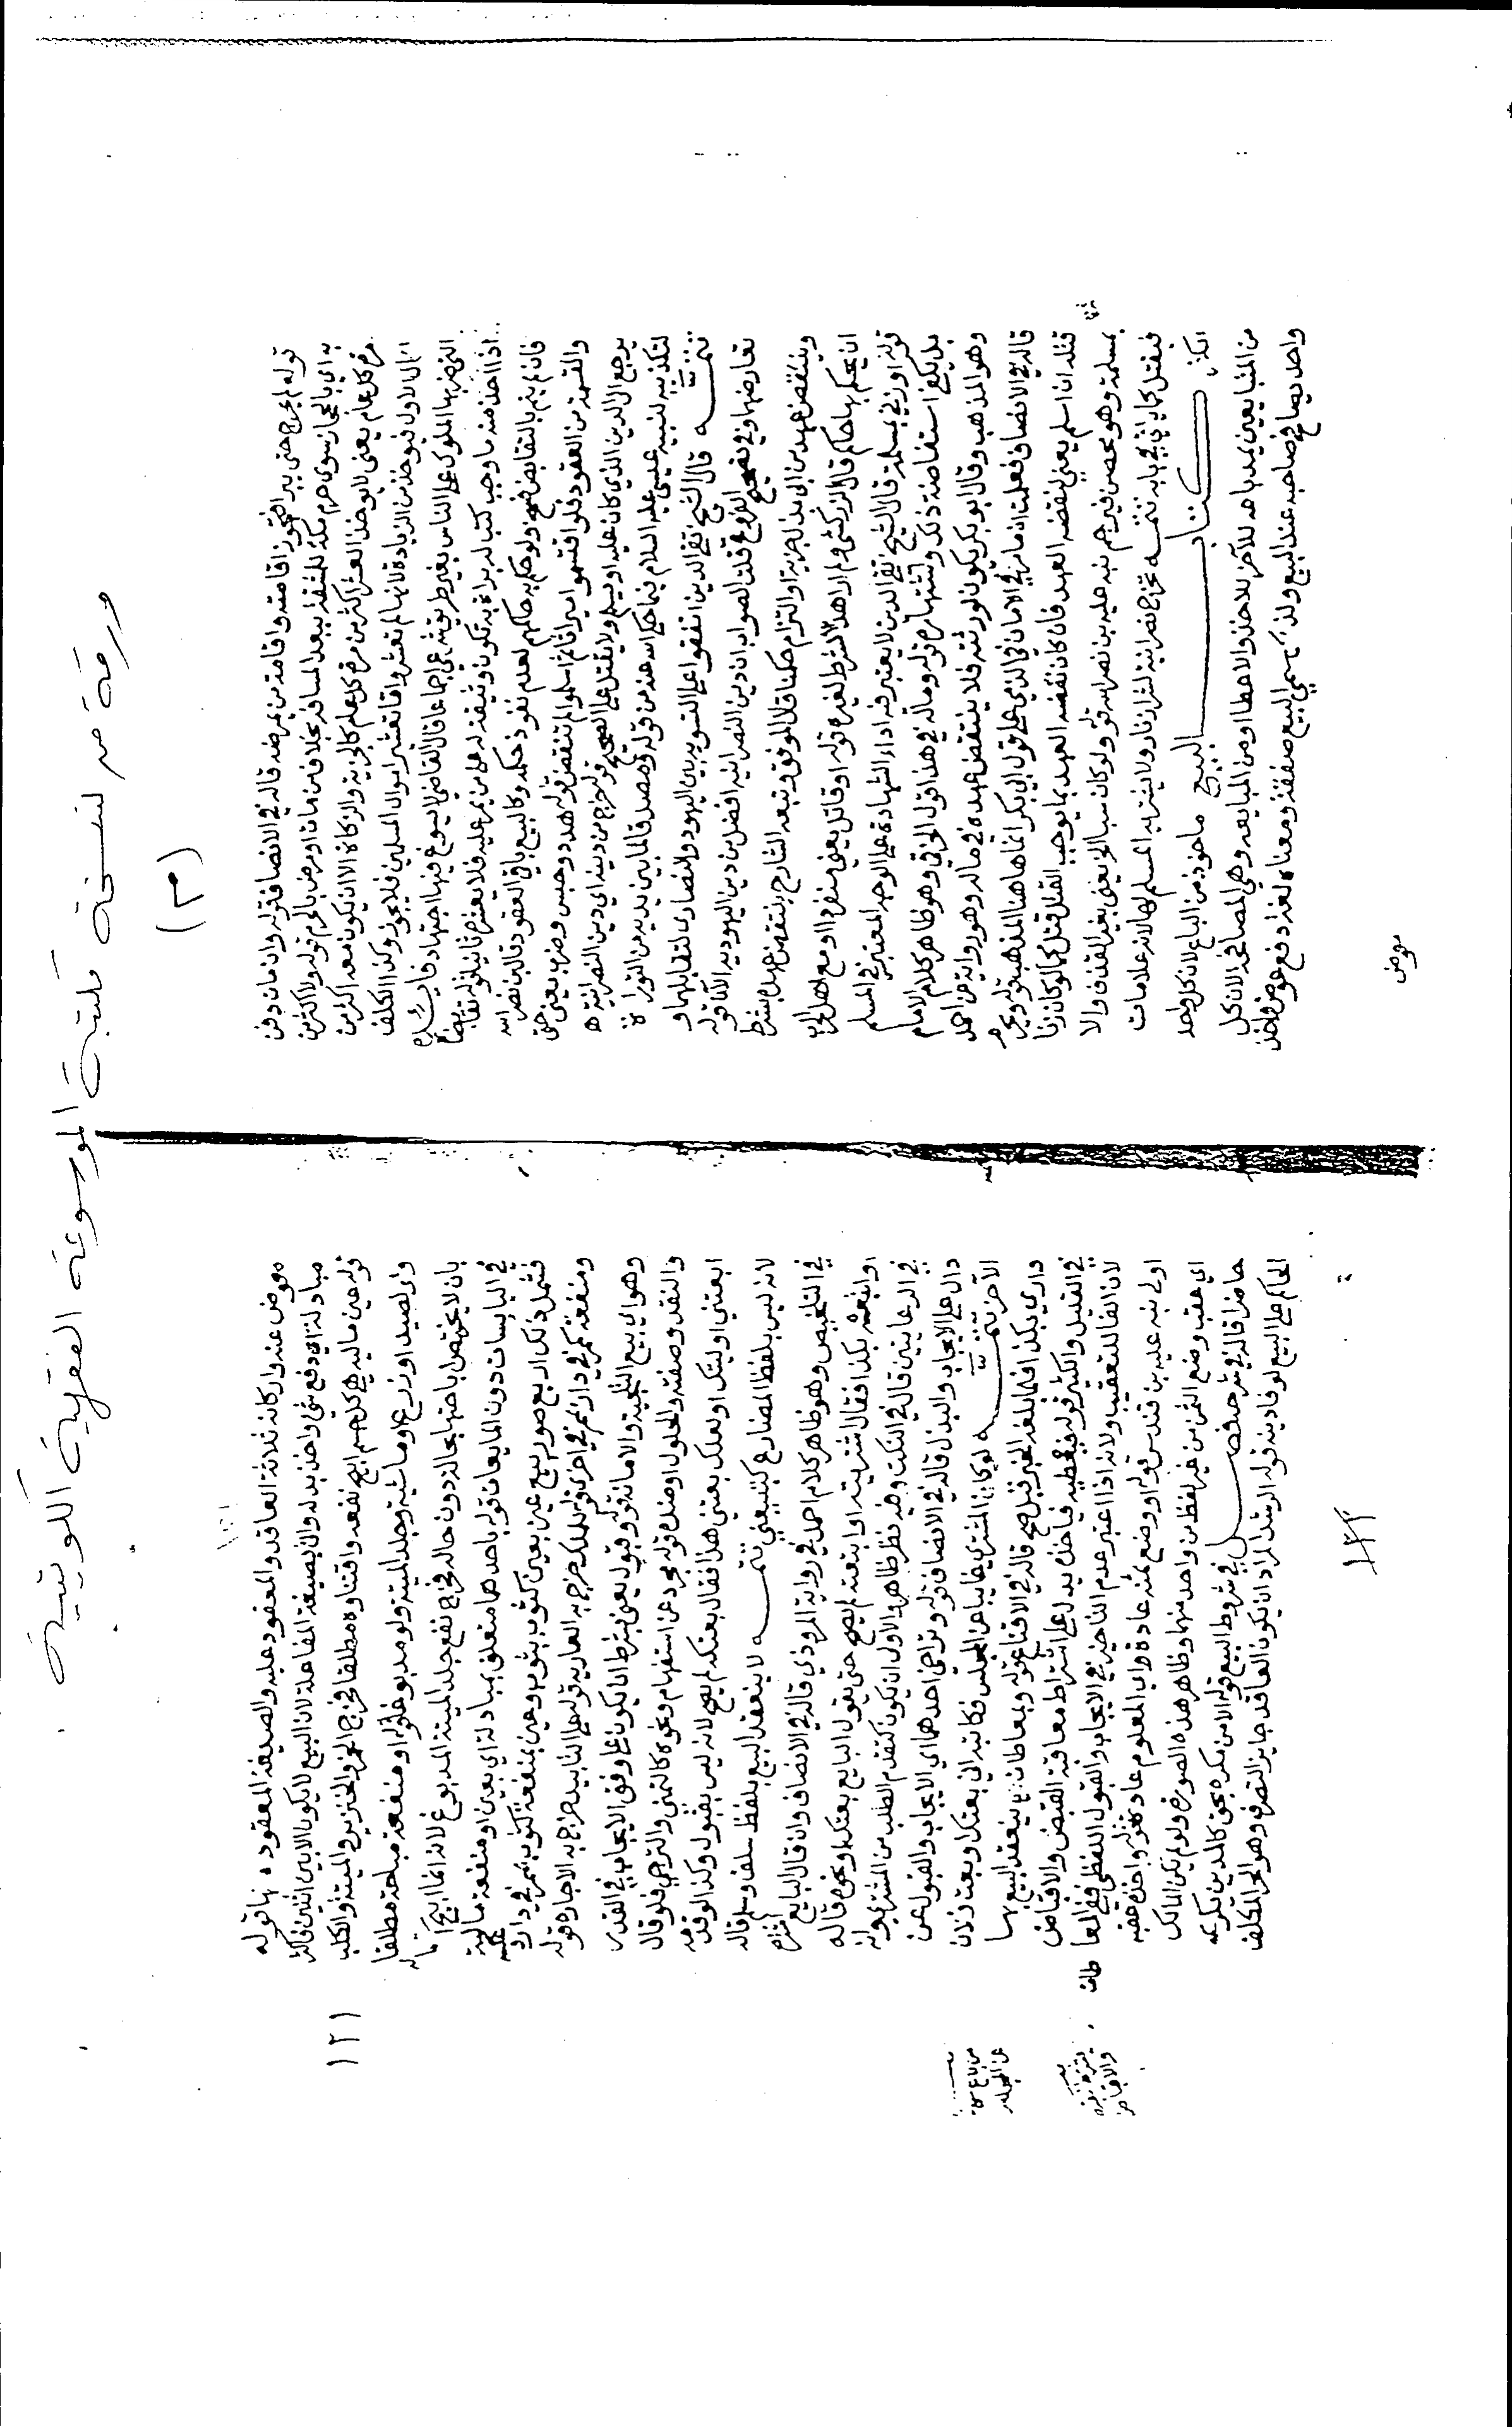 ورقة من نسخة مكتبة الموسوعة الفقهية الكويتية
(م)
قوله لم يخرج حتى يبرا فتجوز اقامته واقامة من يمرضه قاله في الانصاف قوله وان مات دفن
به اي بالحجاز سوى حرم مكة للمشقة ببعد المسافر بخلاف من مات او مرض بالحرم قوله ولا اكثر من
مرة كل عام يعني لا يوخذ العشر اكثر من مرة كل عام كالجزية والزكاة الا ان يكون معه اكثر من
المال الاول فيوخذ من الزيادة لانها لم تعشر واما تعشير اموال المسلمين فلا يجوز وكذا الكلف
التي ضربها الملوك على الناس بغير طريق شرعي اجماعا قال القاضي لا يسوغ فيها اجتهاد
اذا اخذ منه ما وجب كتب له براة به تكون وثيقة له على من يمر عليه فلا يعشره ثانيا قوله تقابضا
فان لم يتم بالتقابض فسخ ولو حكم به حاكمهم لعدم نفوذ حكمه وكالبيع باقي العقود قاله بن نصر الله
والقسمة من العقود فلو اقتسموا ميراثا ثم اسلموا لم تنقض قوله هدد وحبس وضرب يعني حتى
يرجع الى الدين الذي كان عليه او يسلم ولا يقتل على الصحيح قوله خرج من دينه اي دين النصرانية
لتكذيبه لنبيه عيسى عليه السلام بما حكى الله عنه من قوله ومصدقا لما بين يديه من التوراة
تتمة قال الشيخ تقي الدين اتفقوا على التسوية بين اليهود والنصارى لتقابلهما و
تعارضهما وفي تصحيح الفروع قلت الصواب ان دين النصرانية افضل من دين اليهودية الآن قوله
وينتقض عهد من ابى بذل جزية او التزام حكمنا قال الموفق وتبعه الشارح ينتقض عهده بشرط
ان يحكم بها حاكم قال الزركشي ولم ار هذا الشرط لغيره قوله او قاتل يعني منفردا او مع اهل الحرب
قوله او زنى بمسلمة قال الشيخ تقي الدين لا يعتبر فيه اداء الشهادة على الوجه المعتبر في المسلم
بل يكفي استفاضة ذلك وشهرته قوله وماله في هذا قول الخرقي وهو ظاهر كلام الامام
وهو المذهب وقال ابو بكر يكون لورثته فلا ينتقض عهده في ماله وهو رواية عن احمد
قاله في الانصاف فعلمت ان ما مر في الامان في الذمي على قول ابي بكر انما ها هنا المذهب قوله ويحرم
قتله ان اسلم يعني بنقضه العهد فان كان نقضه العهد بما يوجب القتل قتل كما لو كان زنا
بمسلمة وهو محصن فيرجم نبه عليه بن نصر الله قوله ولو كان سب النبي يعني بغير القذف والا
فيقتل كما ياتي في بابه تتمة تخرج نصرانية لشراء زنار ولا يشتريه المسلم لها لانه علامات
الكفر كتاب البيع ماخوذ من الباع لان كل واحد
من المتبايعين يمد باعه للآخر للاخذ والاعطا او من المبايعه وهي المصافحة لان كل
واحد يصافح صاحبه عند البيع ولذلك سمي البيع صفقة ومعناه لغة دفع عوض واخذ
معوض
معوض عنه واركانه ثلاثة العاقد والمعقود عليه والصيغة المعقود بها قوله
مبادلة اي دفع شي واخذ بدله واتى بصيغة المفاعلة لان البيع لا يكون الا بين اثنين فاكثر
قوله عين مالية هي كل جسم ابيح نفعه واقتناوه مطلقا فخرج الخمر والخنزير والميتة والكلب
ولو لصيد او زرع وماشية وجلد الميتة ولو مدبوغا قوله او منفعة مباحة مطلقا
بان لا يختص اباحتها بحال دون حال فخرج نفع جلد الميتة المدبوغ لانه انما ابيح استعماله
في اليابسات دون المايعات قوله باحدهما متعلق بمبادلة اي بعين او منفعة مالية
فشمل ذلك اربع صور بيع عين بعين كثوب بثوب وعين بمنفعة كثوب بممر في دار عكسه
ومنفعة كممر في دار بممر في اخرى قوله للملك خرج به العارية قوله على التابيد خرج به الاجارة قوله
وهو اي بيع التلجية والامانة قوله وقبول يعني بشرط ان يكون على وفق الايجاب في القدر
والنقد وصفته والحلول او ضده قوله مجرد عن استفهام ونحوه كالتمني والترجي فلو قال
ابعتني او ليتك او لعلك بعتني هذا فقال بعتكه لم يصح لانه ليس بقبول وكذا لو قدمه
لانه ليس بلفظ المضارع كتبيعني تتمة لا ينعقد البيع بلفظ سلف وسلم قاله
في التلخيص وهو ظاهر كلام احمد في رواية المروذي قاله في الانصاف وان قال البايع اشتراه
او ابتعه بكذا فقال اشتريته او ابتعته لم يصح حتى يقول البايع بعتكه او نحوه قاله
في الرعايتين قال في النكت وفيه نظر ظاهر والاول ان يكون كتقدم الطلب من المشتري وانه
دال على الايجاب والبذل قاله في الانصاف قوله وتراخي احدهما اي الايجاب والقبول عن
الآخر تتمة لو كان المشتري غايبا عن المجلس فكاتبه اني بعتك او بعت فلان
داري بكذا فلما بلغه الخبر قبل صح قاله في الاقناع قوله وبمعاطاة اي ينعقد البيع بها
في القليل والكثير قوله فيعطيه فياخذه يدل على اشتراط معاقبة القبض والاقباض
لان الفا للتعقيب ولانه اذا اعتبر عدم التاخير في الايجاب والقبول اللفظي ففي المعاطاة
اولى نبه عليه بن قندس قوله او وضع ثمنه عادة اي المعلوم عادة قوله واخذه عقبه
اي عقب وضع الثمن من غير لفظ من واحد منهما وظاهر هذه الصورة ولو لم يكن المالك
حاضرا قاله في شرحه فصل في شروط البيع قوله الا من مكره بحق كالمدين يكرهه
الحاكم على البيع لوفا دينه قوله الرشد المراد ان يكون العاقد جايز التصرف وهو الحر المكلف
١٢١
١٢٢